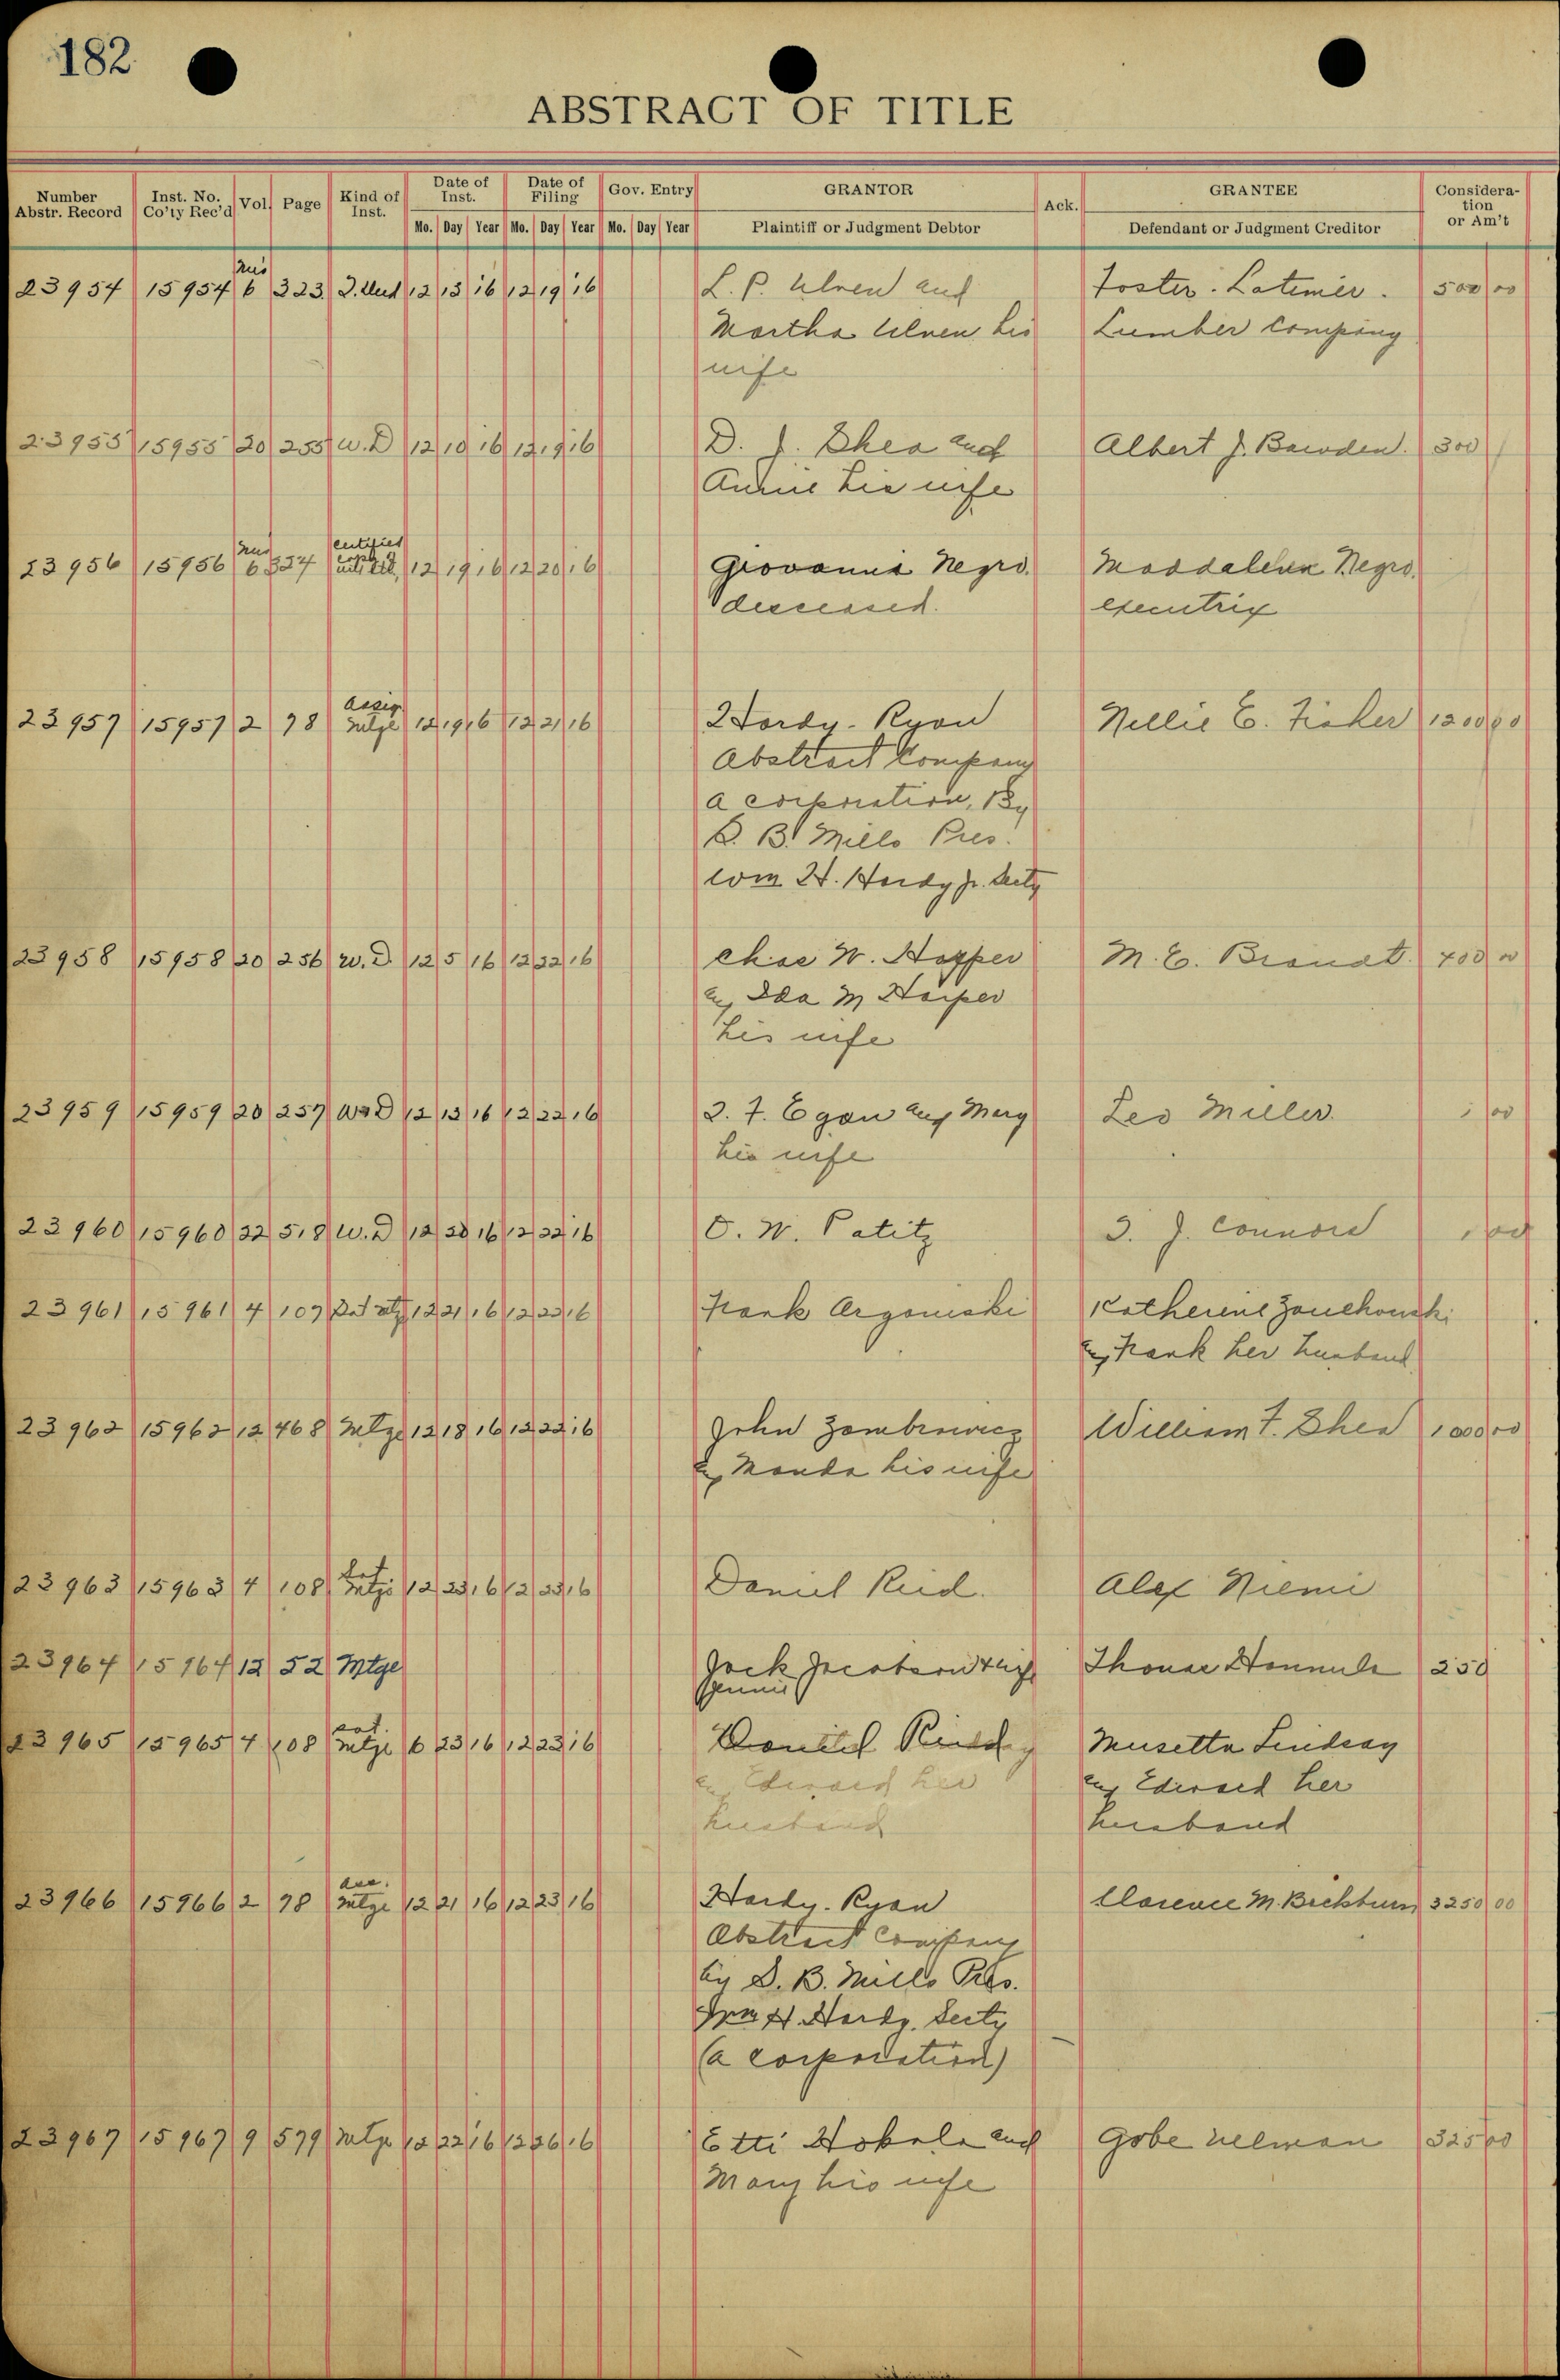 182
ABSTRACT OF TITLE
Number Abstr. Record | Inst. No. Co'ty Rec'd | Vol. | Page | Kind of Inst. | Date of Inst. | Date of Filing | Gov. Entry | GRANTOR | Ack. | GRANTEE | Considera-tion or Am't
Mo. Day Year | Mo. Day Year | Mo. Day Year | Plaintiff or Judgment Debtor | Defendant or Judgment Creditor
23954 15954 Mis 6 323 12 13 16 12 19 16 L. P. Ulven and Foster-Latimer 500 00
Martha Ulven his Lumber Company
wife
23955 15955 20 255 W.D 12 10 16 12 19 16 D. J. Shea and Albert J. Bawden. 300
Annie his wife
certified
23956 15956 Mis 6 324 copy of 12 19 16 12 20 16 Giovanni Negro. Maddalena Negro,
deceased. executrix
Assig
23957 15957 2 98 Mtge 12 19 16 12 21 16 Hardy-Ryan Nellie E. Fisher 1200 00
Abstract Company
a corporation, By
D. B. Mills Pres.
Wm H. Hardy Jr. Secty
23958 15958 20 256 W.D 12 5 16 12 22 16 Chas W. Harper M. E. Brandt. 400 00
and Ida M Harper
his wife
23959 15959 20 257 W.D 12 13 16 12 22 16 F. Egan and Mary Leo Miller. 1 00
his wife
23960 15960 22 518 W.D 12 20 16 12 22 16 O. W. Patitz J. Connors 1 00
23961 15961 4 107 Sat Mtg 12 21 16 12 22 16 Frank Argoniski Katherine Zouchouski
and Frank her husband
23962 15962 12 468 Mtge 12 18 16 12 22 16 John Zambrowicz William F. Shea 1000 00
and Manda his wife
Sat
23963 15963 4 108 Mtge 12 23 16 12 23 16 Daniel Reid. Alex Niemi
23964 15964 12 52 Mtge Jack Jacobson & wife Thomas Hannula 250
Jennie
Sat.
23965 15965 4 108 Mtge 6 23 16 12 23 16 Daniel Reid Musetta Lindsay
and Edward her and Edward her
husband husband
Ass.
23966 15966 2 98 Mtge 12 21 16 12 23 16 Hardy-Ryan Clarence M. 3250 00
Abstract Company
by D. B. Mills Pres.
Wm H. Hardy. Secty
(a corporation)
23967 15967 9 579 Mtge 12 22 16 12 26 16 Etti Hokala and Gobe 325 00
Mary his wife